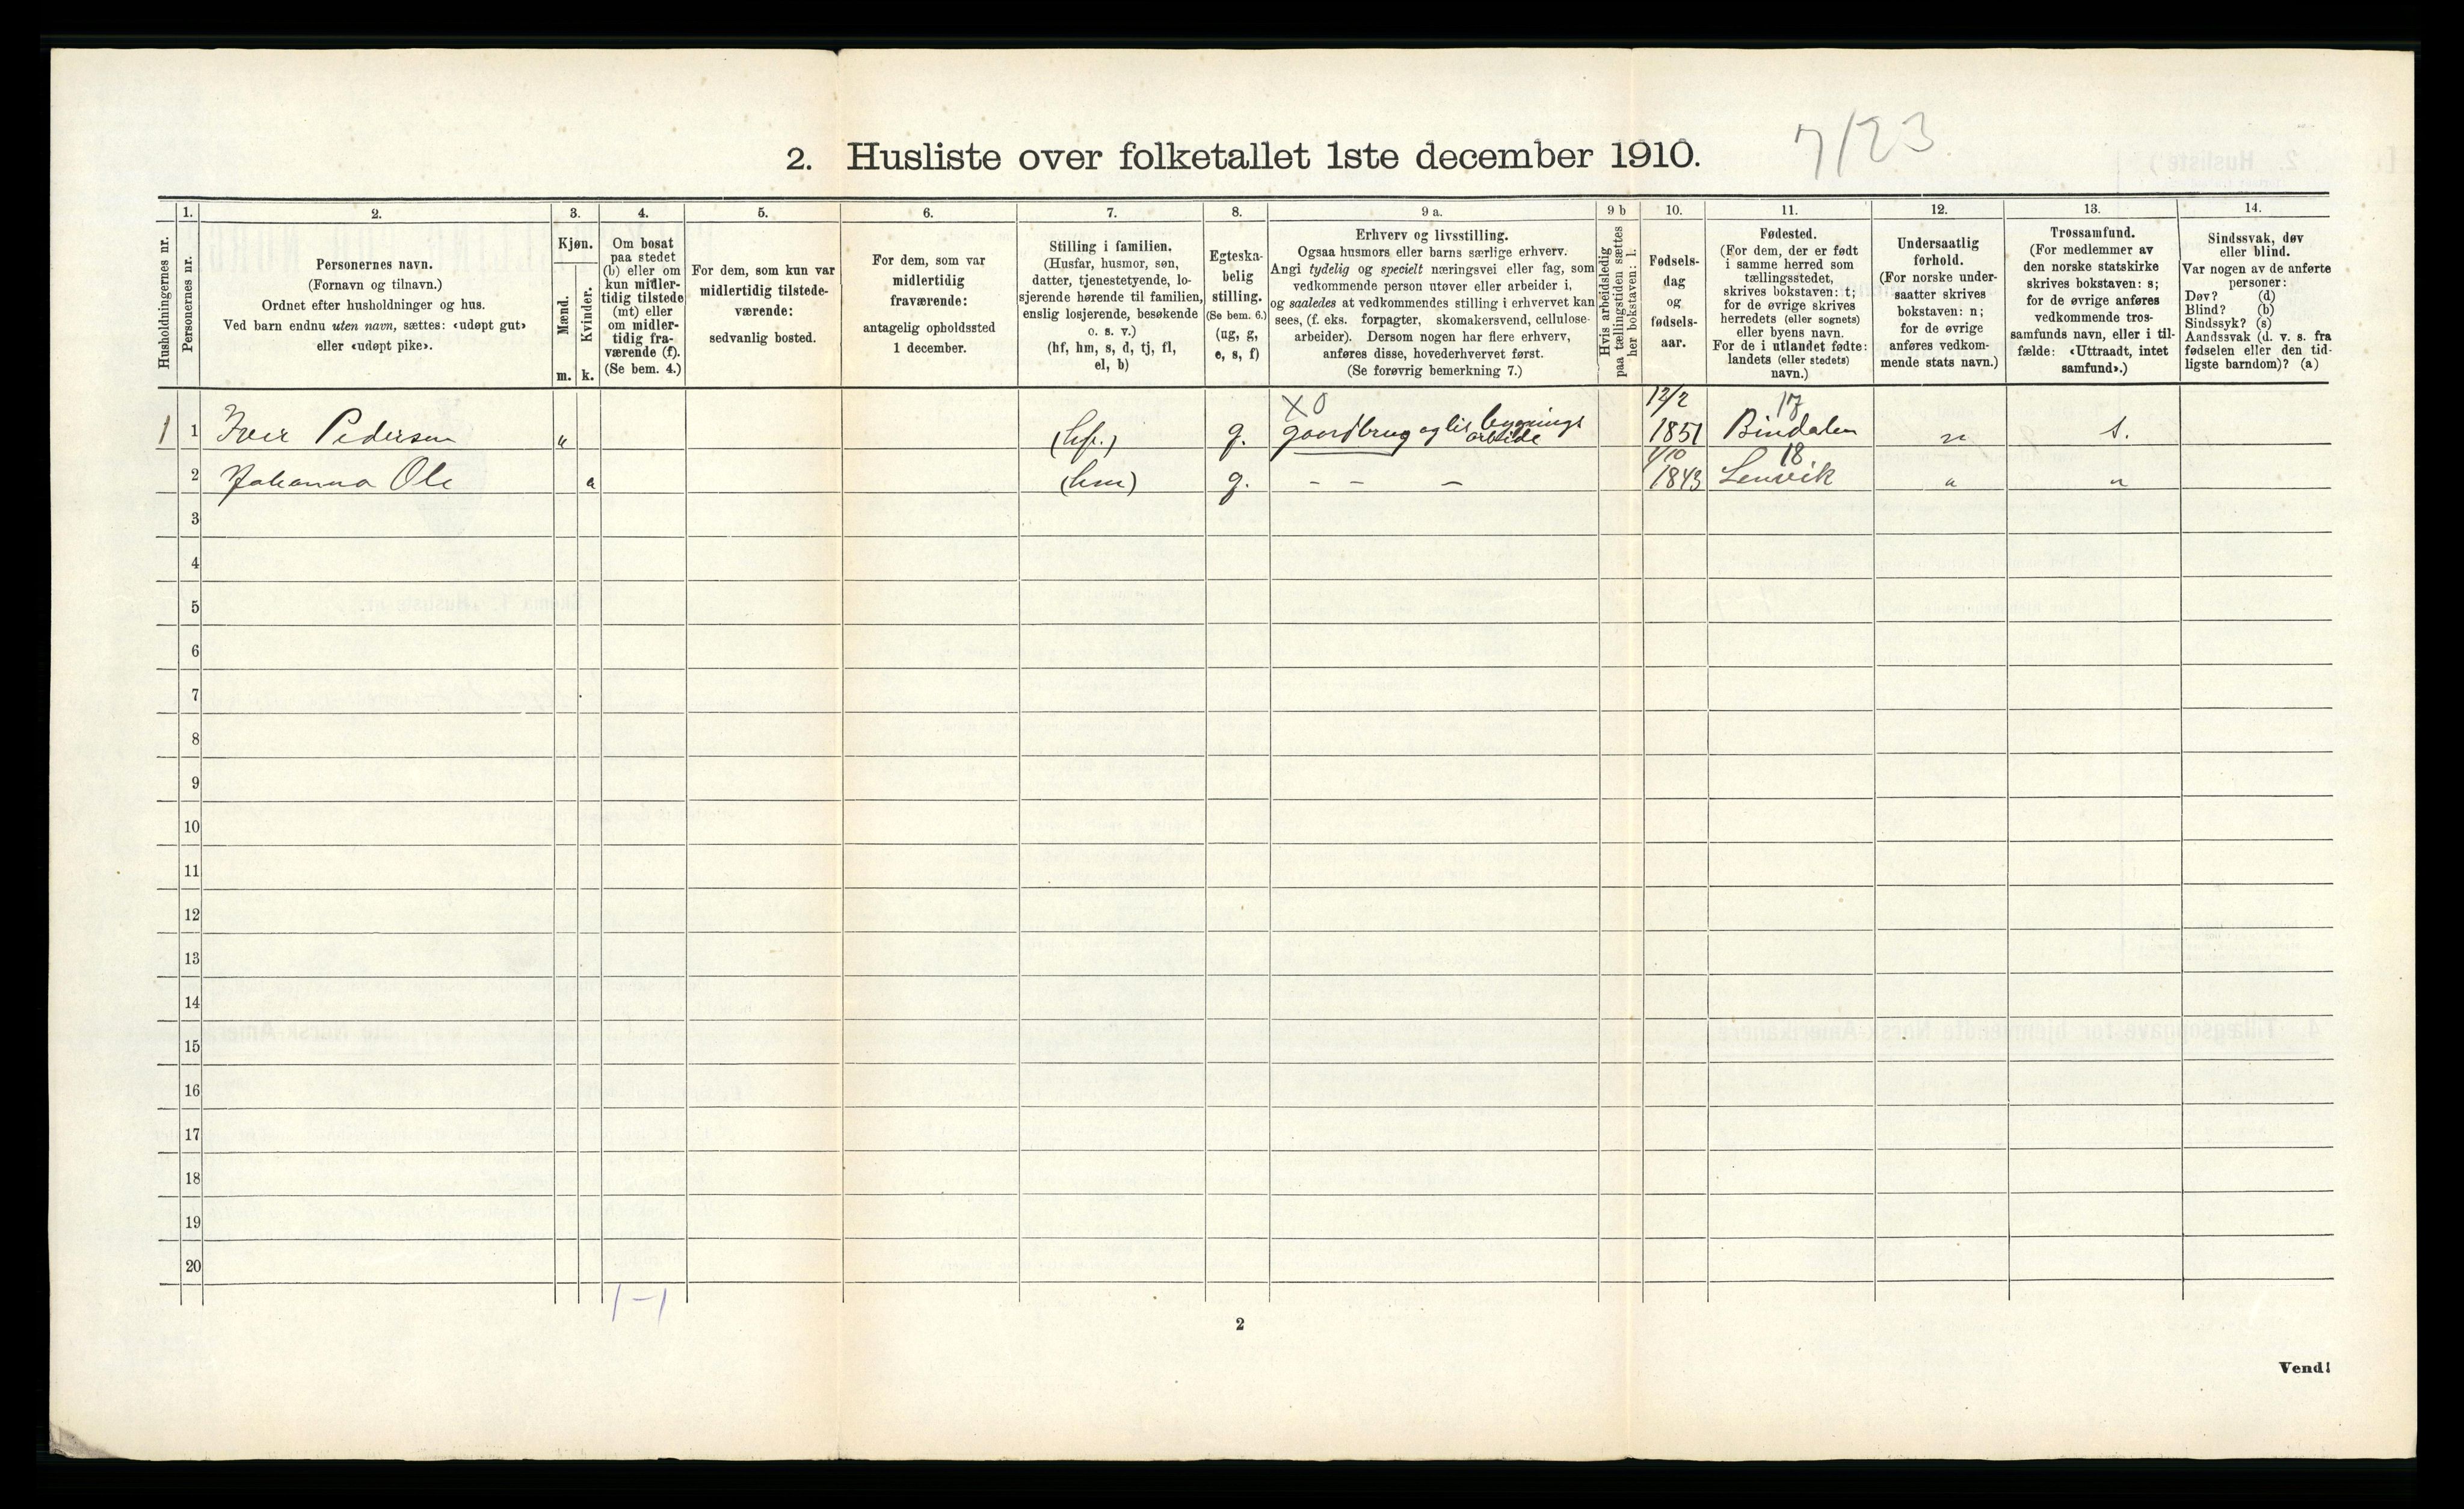 2. Husliste over folketallet 1ste december 1910.
7/23
Husholdningernes nr.
1.
Personernes nr.
2.
Personernes navn.
(Fornavn og tilnavn.)
Ordnet efter husholdninger og hus.
Ved barn endnu uten navn, sættes: «udøpt gut»
eller «udøpt pike».
3.
Kjøn.
Mænd.
m.
Kvinder.
k.
4.
Om bosat
paa stedet
(b) eller om
kun midler-
tidig tilstede
(mt) eller
om midler-
tidig fra-
værende (f).
(Se bem. 4.)
5.
For dem, som kun var
midlertidig tilstede-
værende:
sedvanlig bosted.
6.
For dem, som var
midlertidig
fraværende:
antagelig opholdssted
1 december.
7.
Stilling i familien.
(Husfar, husmor, søn,
datter, tjenestetyende, lo-
sjerende hørende til familien,
enslig losjerende, besøkende
o. s. v.)
(hf, hm, s, d, tj, fl,
el, b)
8.
Egteska-
belig
stilling.
(Se bem. 6.)
(ug, g,
e, s, f)
9 a.
Erhverv og livsstilling.
Ogsaa husmors eller barns særlige erhverv.
Angi tydelig og specielt næringsvei eller fag, som
vedkommende person utøver eller arbeider i,
og saaledes at vedkommendes stilling i erhvervet kan
sees, (f. eks. forpagter, skomakersvend, cellulose-
arbeider). Dersom nogen har flere erhverv,
anføres disse, hovederhvervet først.
(Se forøvrig bemerkning 7.)
9 b
Hvis arbeidsledig
paa tællingstiden sættes
her bokstaven: l.
10.
Fødsels-
dag
og
fødsels-
aar.
11.
Fødested.
(For dem, der er født
i samme herred som
tællingsstedet,
skrives bokstaven: t;
for de øvrige skrives
herredets (eller sognets)
eller byens navn.
For de i utlandet fødte:
landets (eller stedets)
navn.)
12.
Undersaatlig
forhold.
(For norske under-
saatter skrives
bokstaven: n;
for de øvrige
anføres vedkom-
mende stats navn.)
13.
Trossamfund.
(For medlemmer av
den norske statskirke
skrives bokstaven: s;
for de øvrige anføres
vedkommende tros-
samfunds navn, eller i til-
fælde: «Uttraadt, intet
samfund».)
14.
Sindssvak, døv
eller blind.
Var nogen av de anførte
personer:
Døv? (d)
Blind? (b)
Sindssyk? (s)
Aandssvak (d. v. s. fra
fødselen eller den tid-
ligste barndom)? (a)
X0 12/2 17
1 1 Iver Pedersen " (hf.) g. gaardbrug og bygnings arbeide 1851 Bindalen n s.
1/10 18
2 Johanna Ole " (hm) g. - - - 1843 Lenvik " "
3
4
5
6
7
8
9
10
11
12
13
14
15
16
17
18
19
20
1-1
2
Vend!